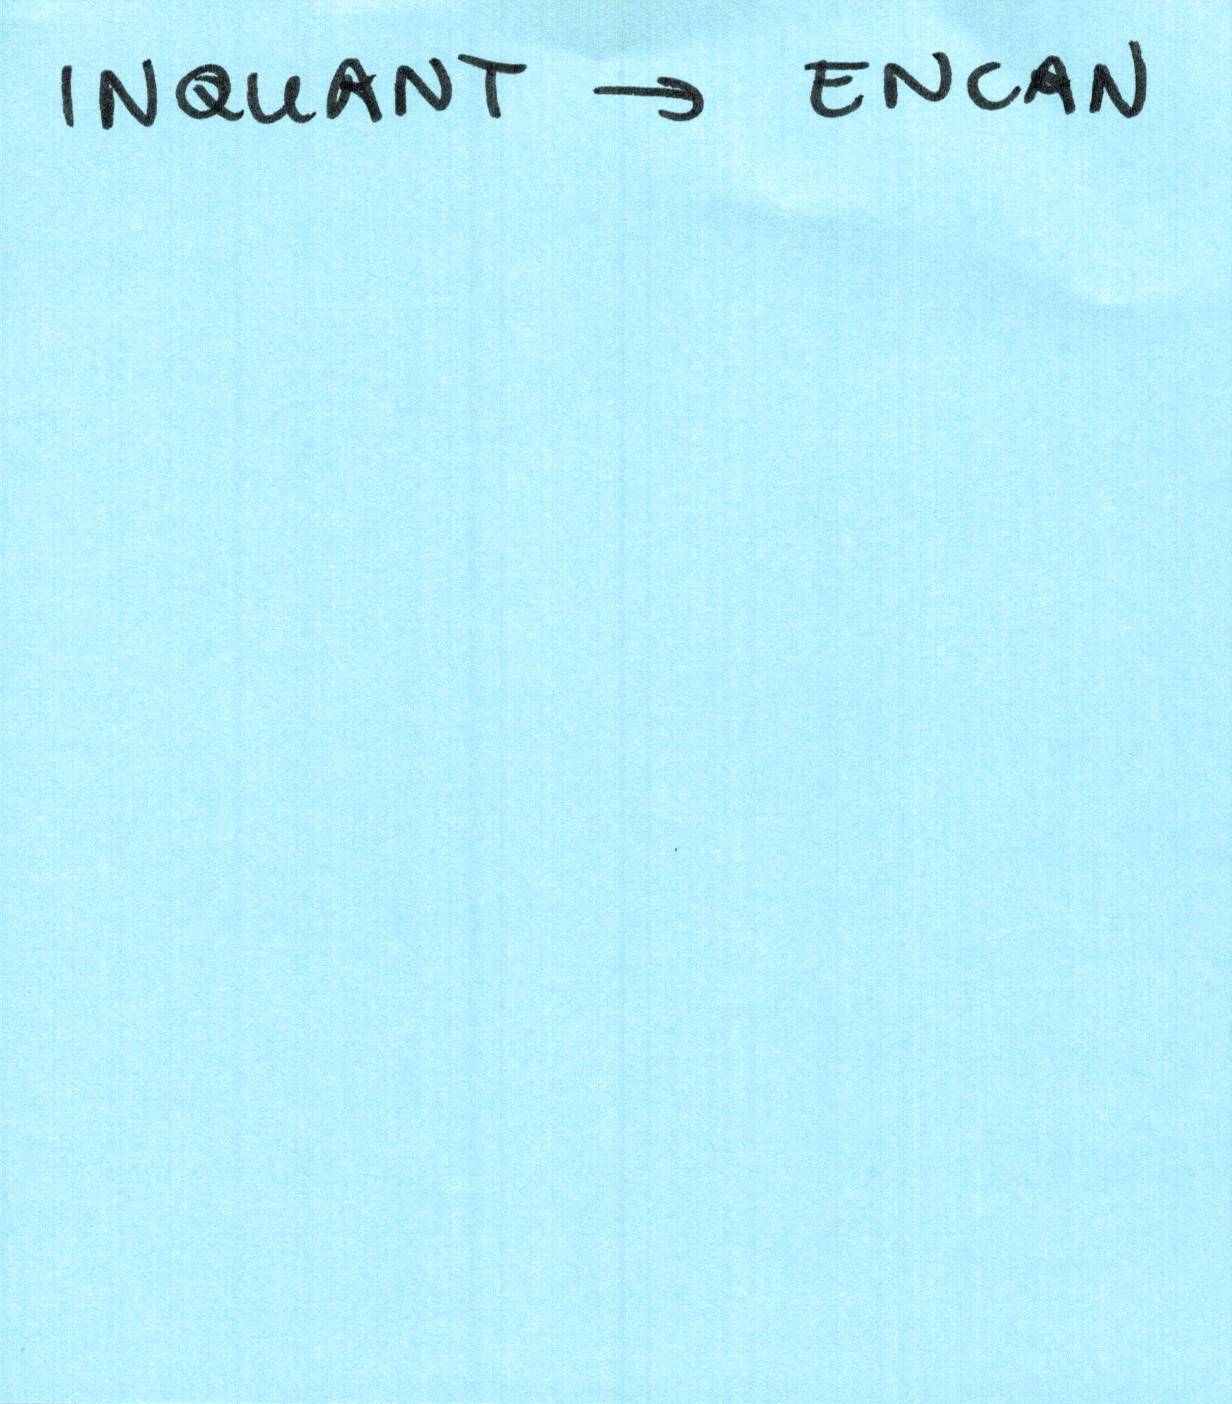 INQUANT → ENCAN